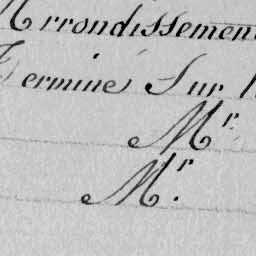 Arrondissement
Termine Sur
Mr.
Mr.